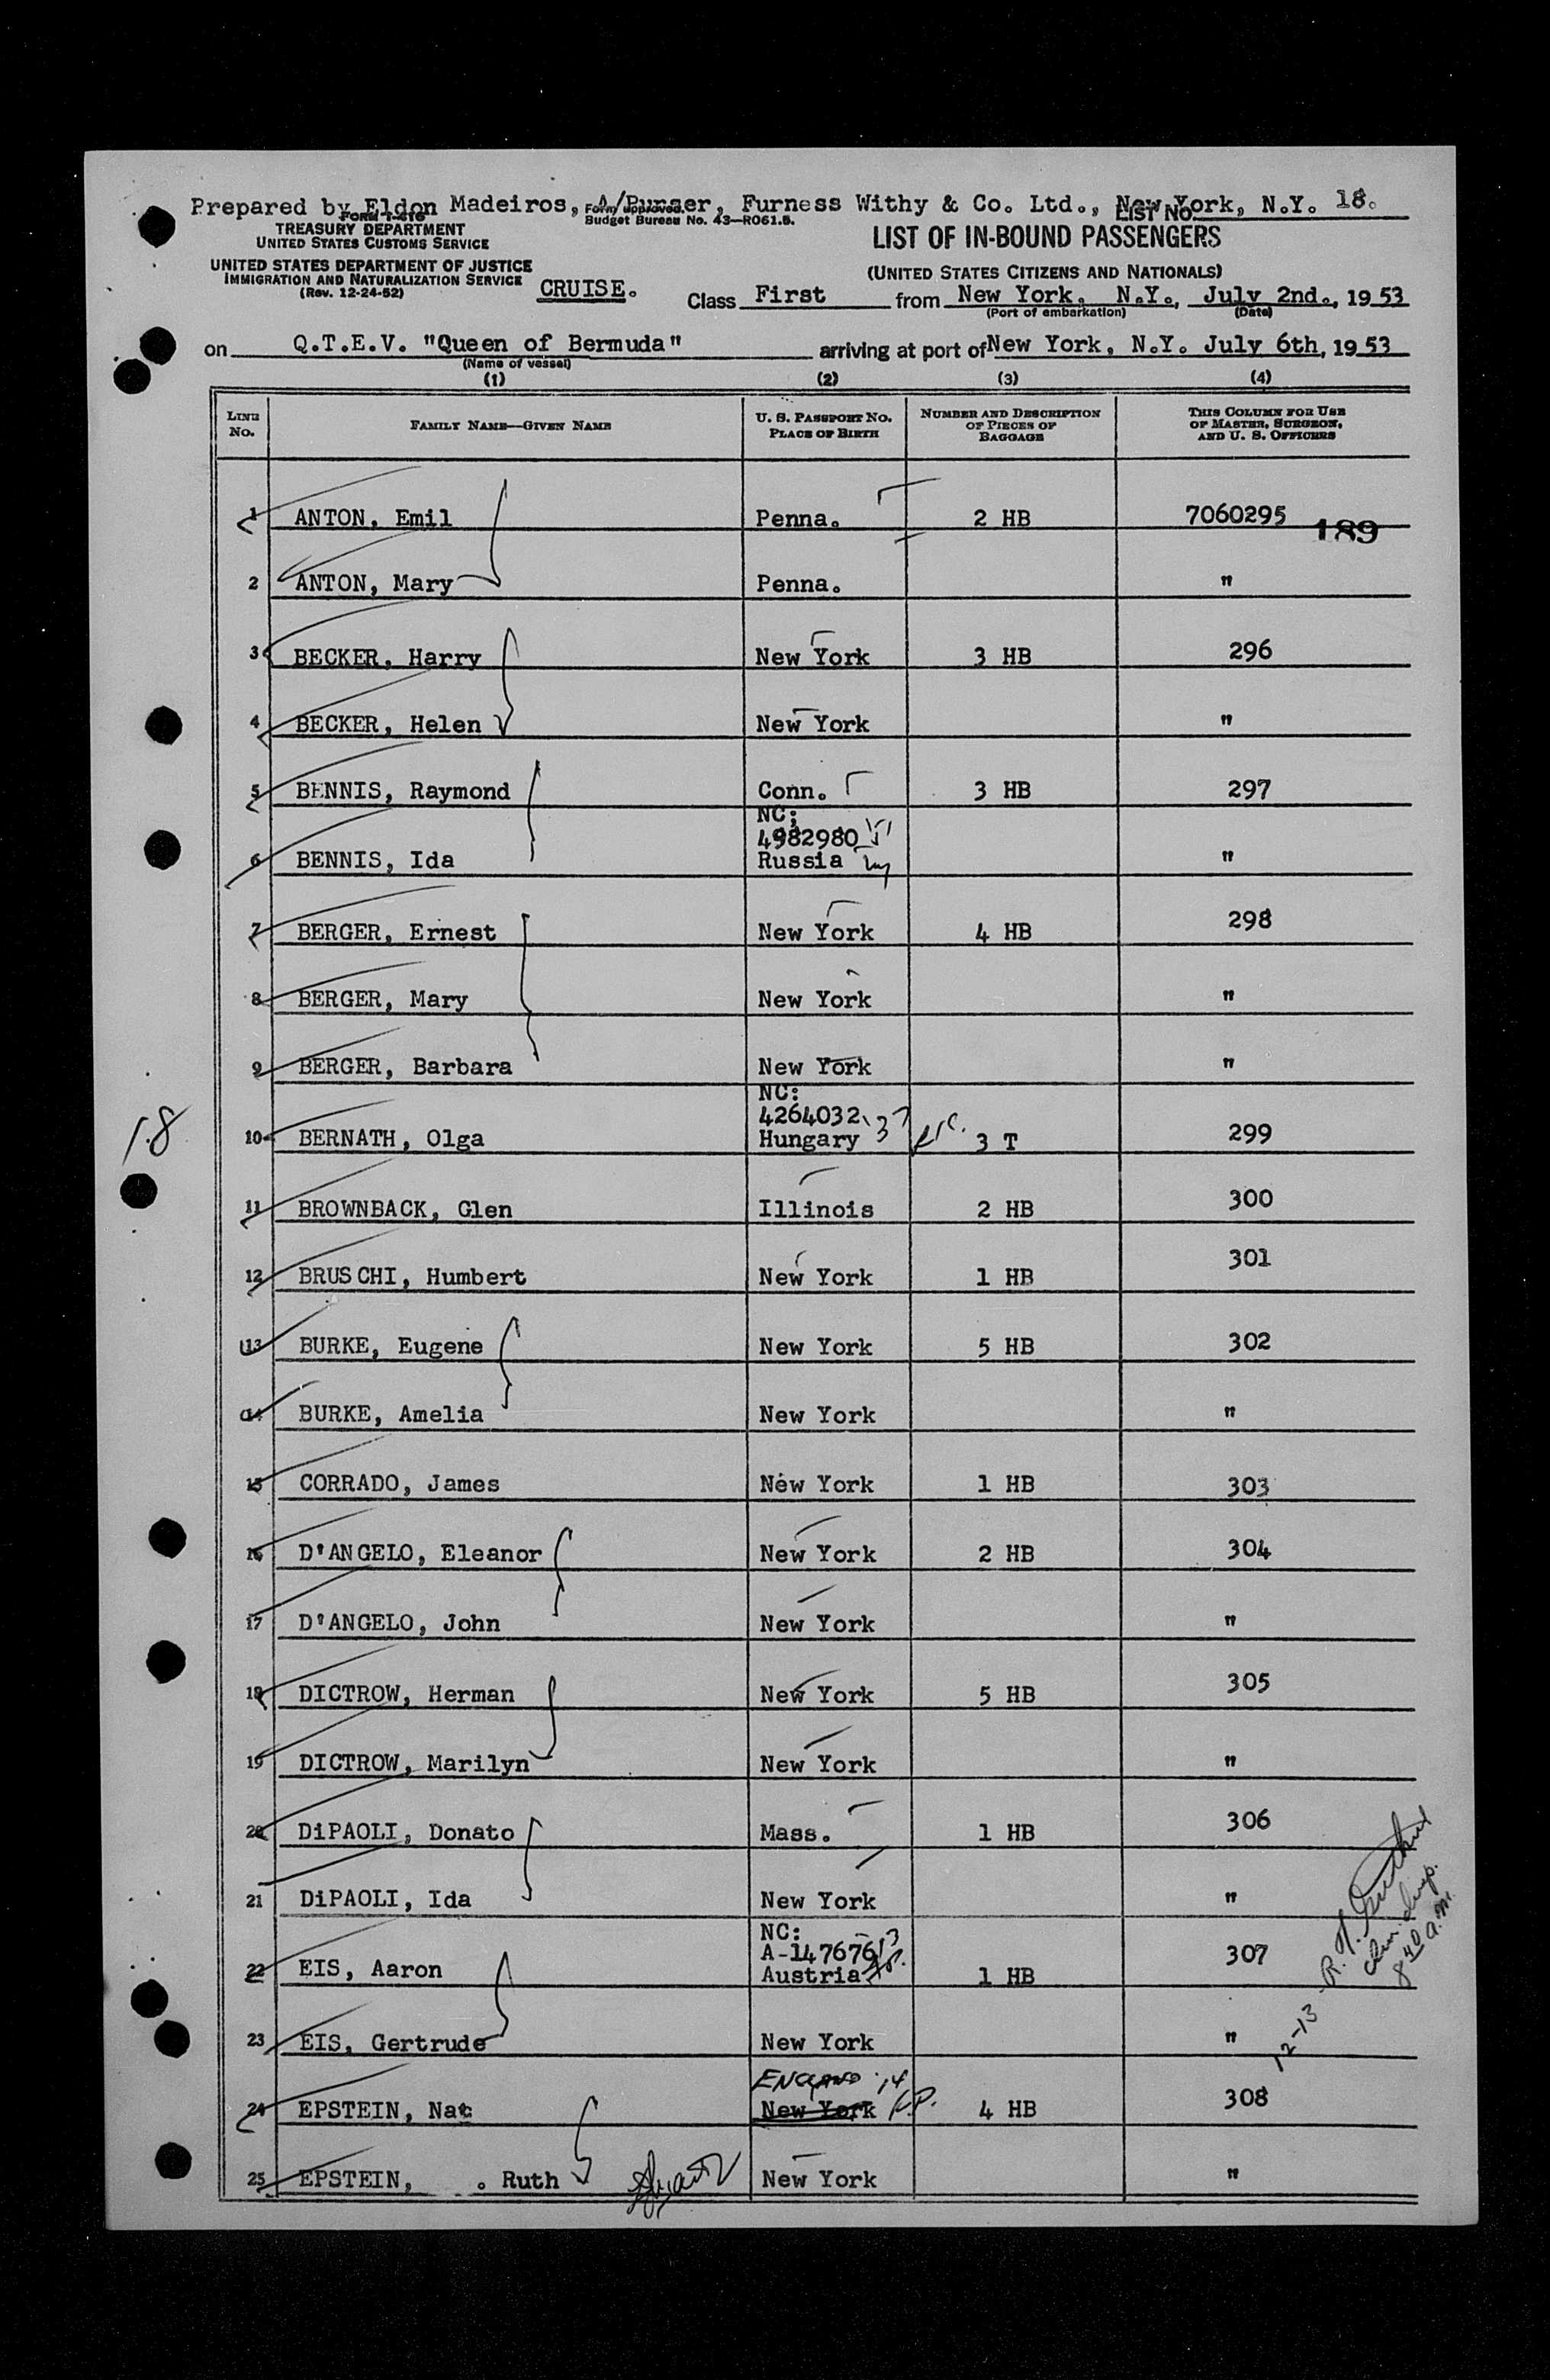 Prepared by Eldon Madeiros, A/Purser, Furness Withy & Co. Ltd., New York, N.Y. LIST NO. 18.
FORM I-416
Form approved.
Budget Bureau No. 43—R061.5.
TREASURY DEPARTMENT
UNITED STATES CUSTOMS SERVICE
UNITED STATES DEPARTMENT OF JUSTICE
IMMIGRATION AND NATURALIZATION SERVICE
(Rev. 12-24-52)
CRUISE.
LIST OF IN-BOUND PASSENGERS
(UNITED STATES CITIZENS AND NATIONALS)
Class First from New York, N.Y., July 2nd., 1953
(Port of embarkation) (Date)
on Q.T.E.V. "Queen of Bermuda" arriving at port of New York, N.Y. July 6th, 1953
(Name of vessel)
(1) (2) (3) (4)
LINE No. FAMILY NAME—GIVEN NAME U. S. PASSPORT NO. PLACE OF BIRTH NUMBER AND DESCRIPTION OF PIECES OF BAGGAGE THIS COLUMN FOR USE OF MASTER, SURGEON, AND U. S. OFFICERS
1 ANTON, Emil Penna. 2 HB 7060295 189
2 ANTON, Mary Penna. "
3 BECKER, Harry New York 3 HB 296
4 BECKER, Helen New York "
5 BENNIS, Raymond Conn. 3 HB 297
NC;
4982980
6 BENNIS, Ida Russia "
7 BERGER, Ernest New York 4 HB 298
8 BERGER, Mary New York "
9 BERGER, Barbara New York "
NC:
4264032
18
10 BERNATH, Olga Hungary 3 T 299
11 BROWNBACK, Glen Illinois 2 HB 300
12 BRUSCHI, Humbert New York 1 HB 301
13 BURKE, Eugene New York 5 HB 302
14 BURKE, Amelia New York "
15 CORRADO, James New York 1 HB 303
16 D'ANGELO, Eleanor New York 2 HB 304
17 D'ANGELO, John New York "
18 DICTROW, Herman New York 5 HB 305
19 DICTROW, Marilyn New York "
20 DiPAOLI, Donato Mass. 1 HB 306
21 DiPAOLI, Ida New York "
NC:
A-147676
22 EIS, Aaron Austria 1 HB 307
23 EIS, Gertrude New York "
12-13 R. H.
8 40 a.m.
ENGLAND 14
24 EPSTEIN, Nat New York 4 HB 308
25 EPSTEIN, . Ruth New York "